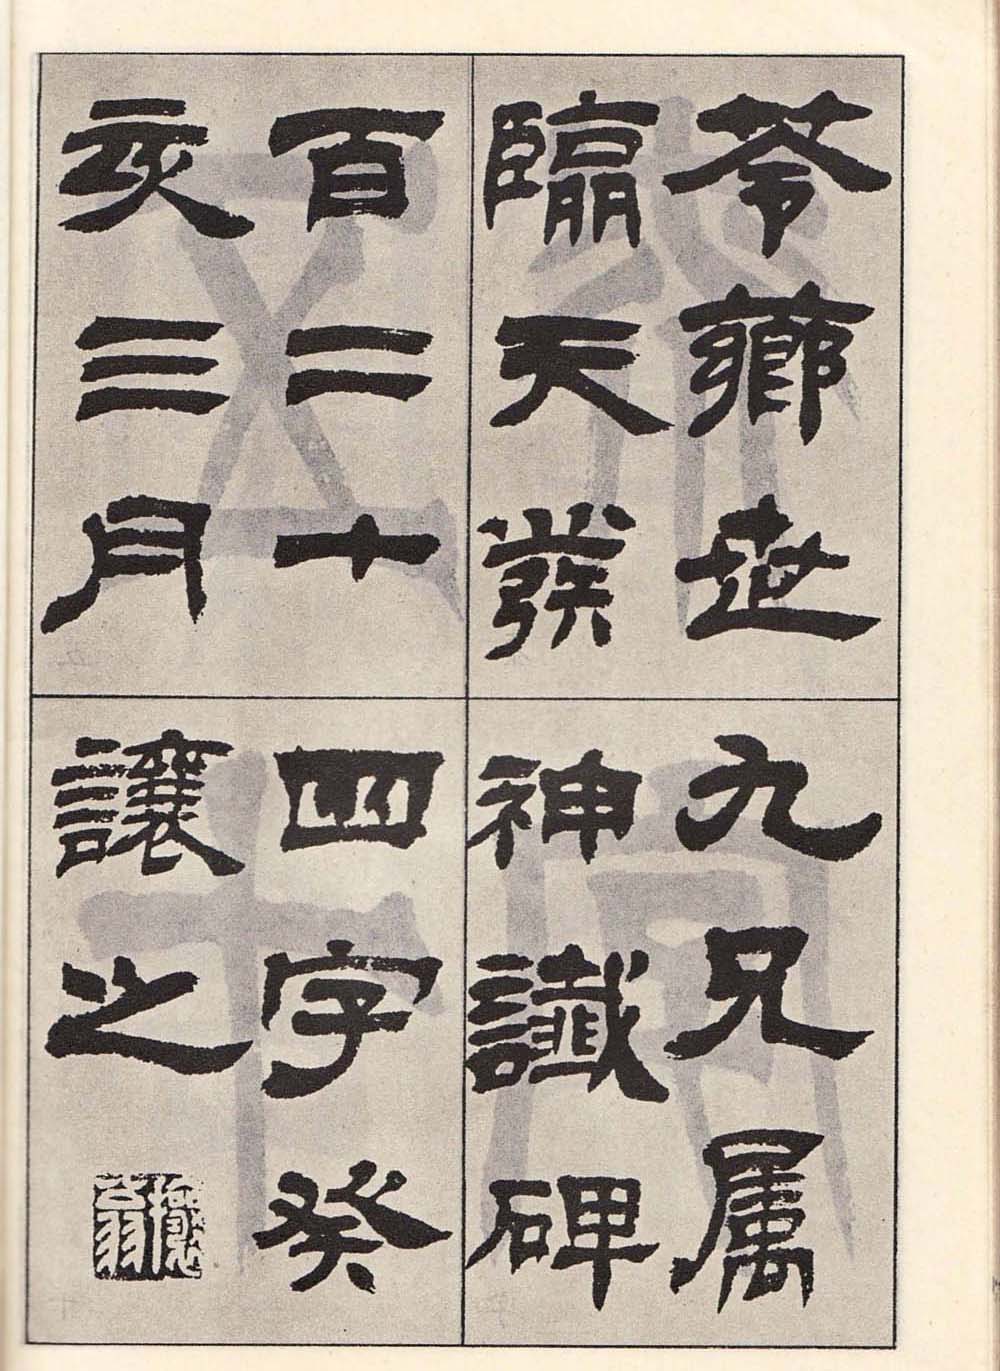 苓薌世九兄属
臨天發神讖碑
百二十四字癸
亥三月讓之
攘翁